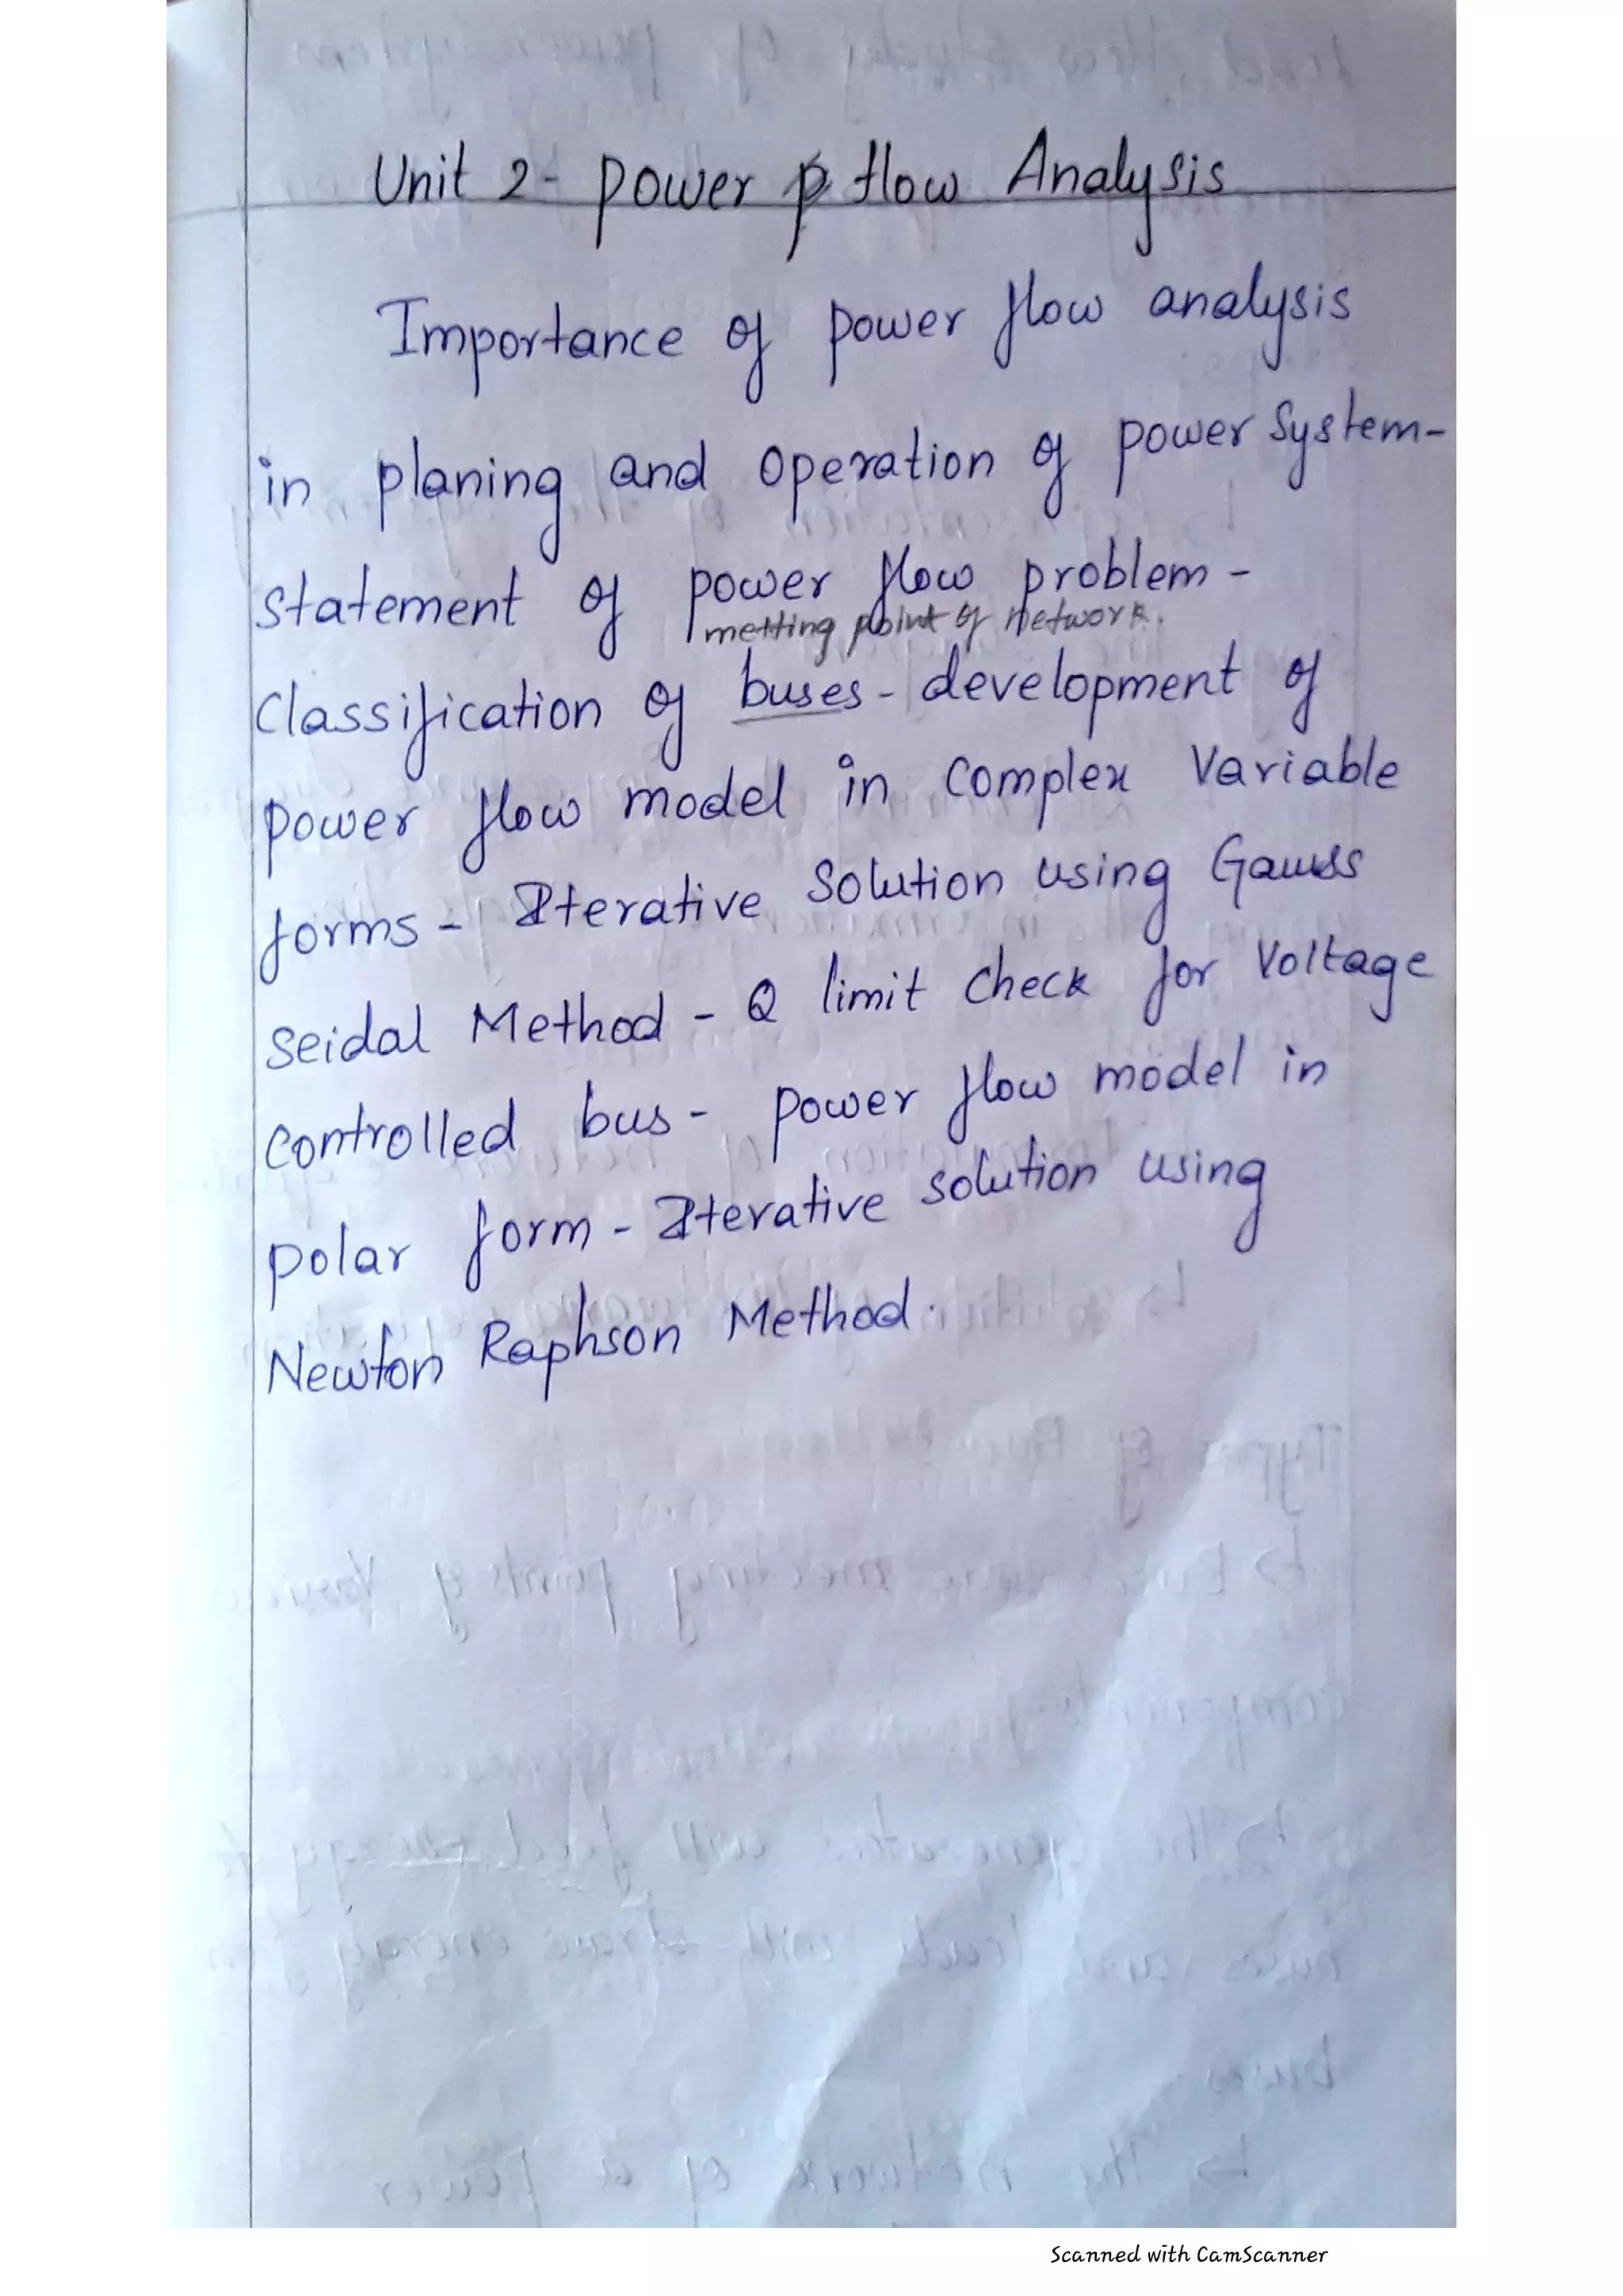 Unit 2- power flow Analysis
Importance of power flow analysis
in planing and operation of power system-
statement of power flow problem -
metting point of network.
Classification of buses - development of
power flow model in complex variable
forms - Iterative solution using Gauss
seidal Method - Q limit check for voltage
controlled bus - power flow model in
polar form - Iterative solution using
Newton Raphson Method.
Scanned with CamScanner